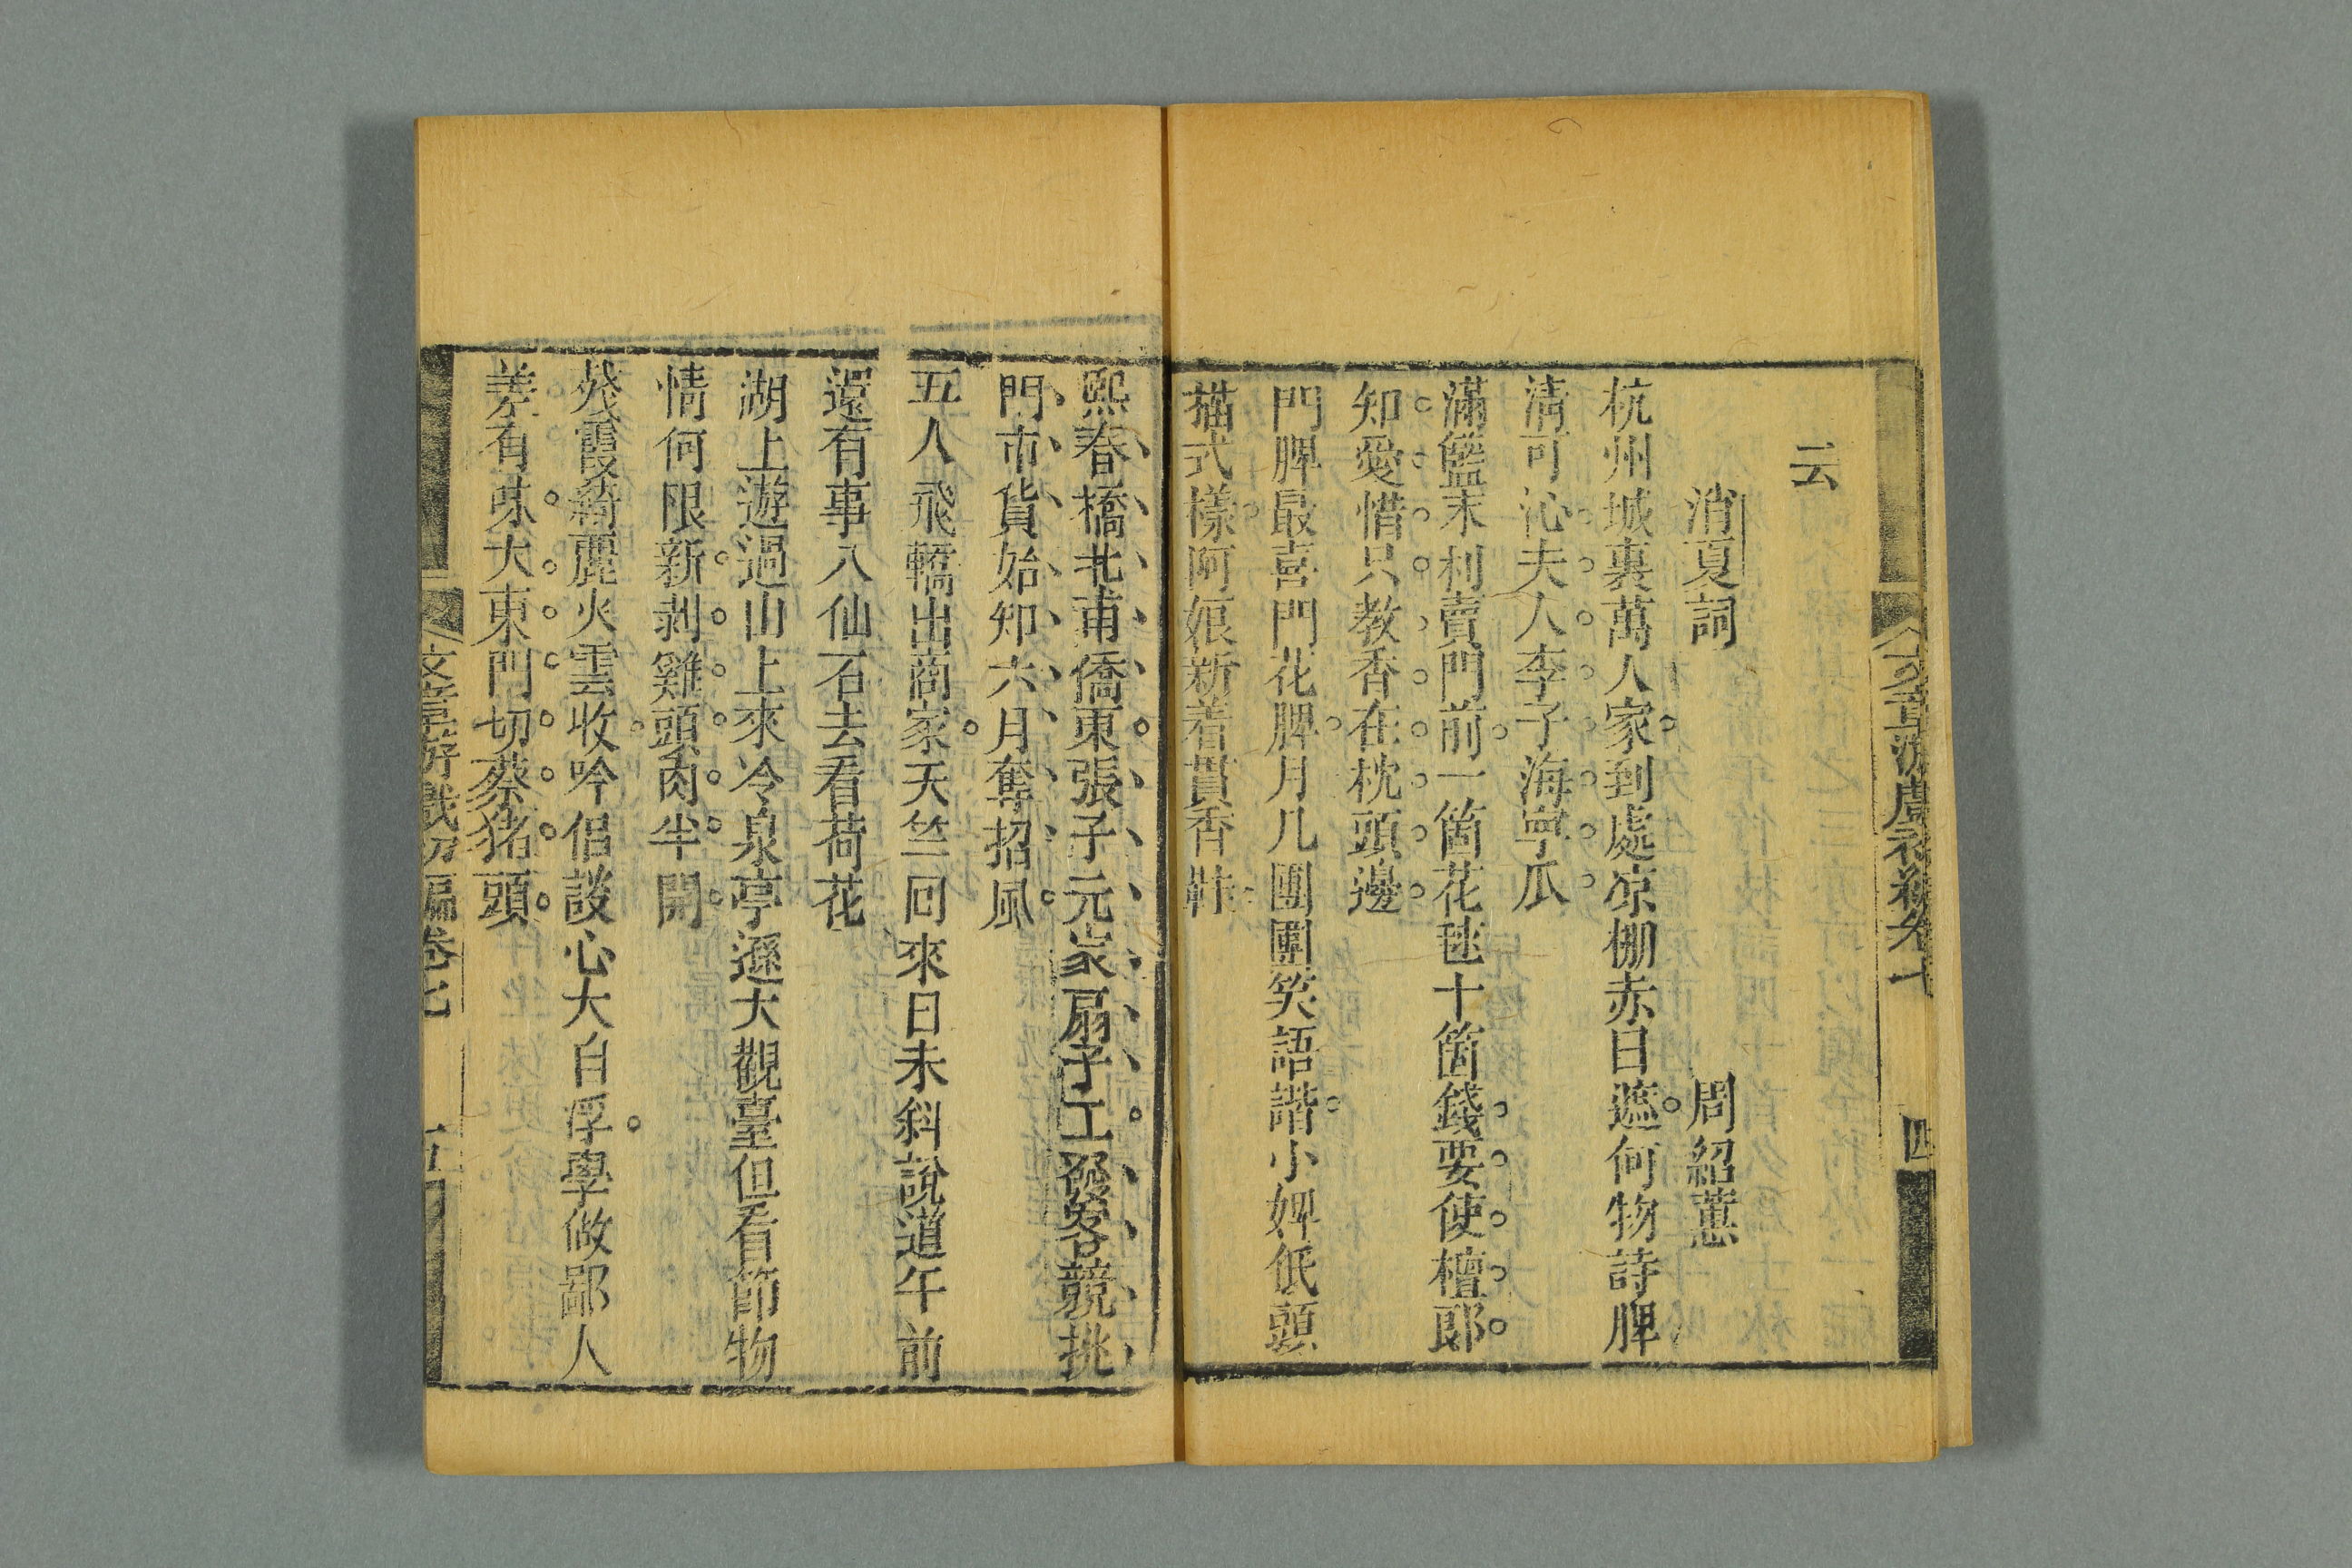 云
消夏詞 周紹蕙
杭州城裏萬人家到處凉棚赤日遮何物詩脾
清可沁夫人李子海寧瓜
滿籃末利賣門前一箇花毬十箇錢要使檀郎
知愛惜只教香在枕頭邊
門脾最喜門花脾月几團圞笑語諧小婢低頭
描式樣阿娘新着貫香鞋
熙春橋北甫僑東張子元家扇子工發客競挑
門市貨始知六月奪招風
五人飛轎出商家天竺回來日未斜說道午前
還有事八仙石去看荷花
湖上遊過山上來冷泉亭遜大觀臺但看節物
情何限新剥雞頭肉半開
殘霞綺麗火雲收吟侶談心大白浮學做鄙人
差有味大東門切蔡猪頭
文章游戲初編卷七 五